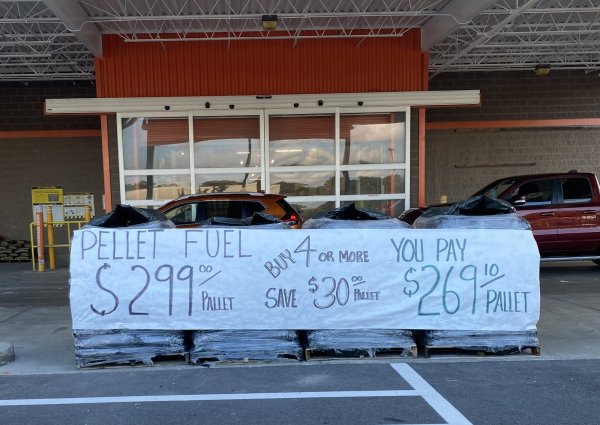 PELLET FUEL
$299 00/PALLET
BUY 4 OR MORE
SAVE $30 00 PALLET
YOU PAY
$269 10/PALLET